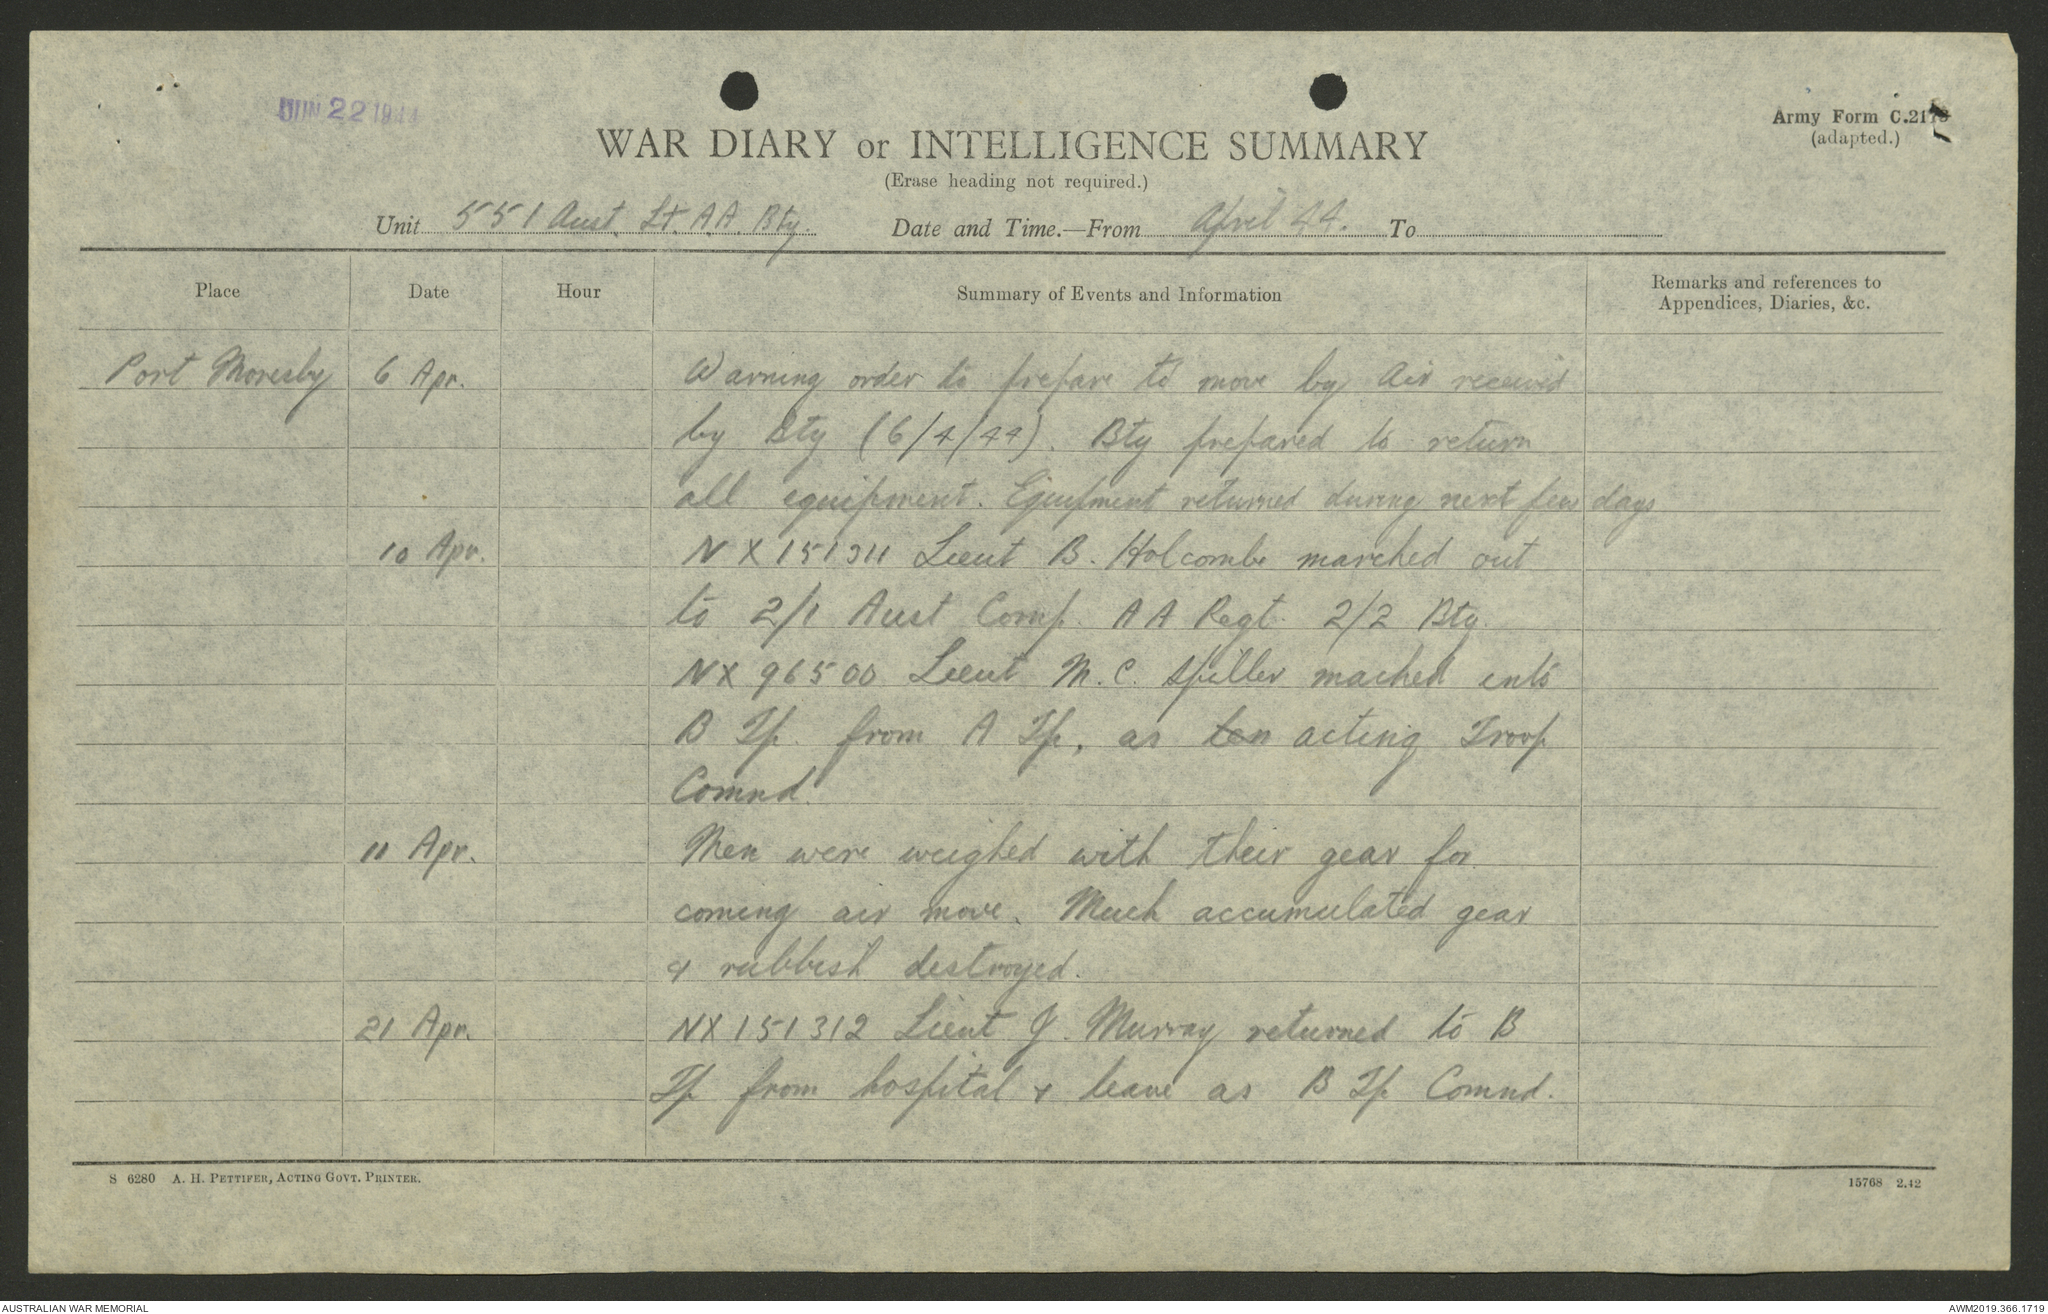 JUN 22 1944
Army Form C.2118
(adapted.)
WAR DIARY or INTELLIGENCE SUMMARY
(Erase heading not required.)
Unit 551 Aust. Lt. A.A. Bty. Date and Time.—From April 44. To
Place Date Hour Summary of Events and Information Remarks and references to
Appendices, Diaries, &c.
Port Moresby 6 Apr. Warning order to prepare to move by Air received
by Bty (6/4/44). Bty prepared to return
all equipment. Equipment returned during next few days
10 Apr. NX151311 Lieut B. Holcombe marched out
to 2/1 Aust Comp. AA Regt. 2/2 Bty.
NX96500 Lieut M.C. Spiller mached into
B Tp. from A Tp, as acting Troop
Comnd.
11 Apr. Men were weighed with their gear for
coming air move. Much accumulated gear
& rubbish destroyed.
21 Apr. NX151312 Lieut J. Murray returned to B
Tp from hospital & leave as B Tp Comnd.
S 6280 A. H. PETTIFER, ACTING GOVT. PRINTER.
15768 2.42
AUSTRALIAN WAR MEMORIAL
AWM2019.366.1719